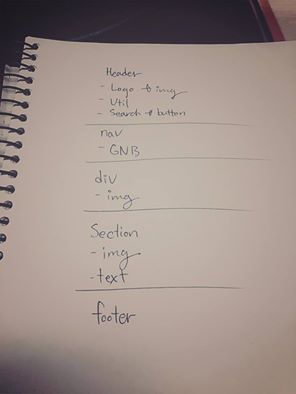 Header
- Logo → img
- Util
- Search → button
nav
- GNB
div
- img
Section
- img
- text
footer